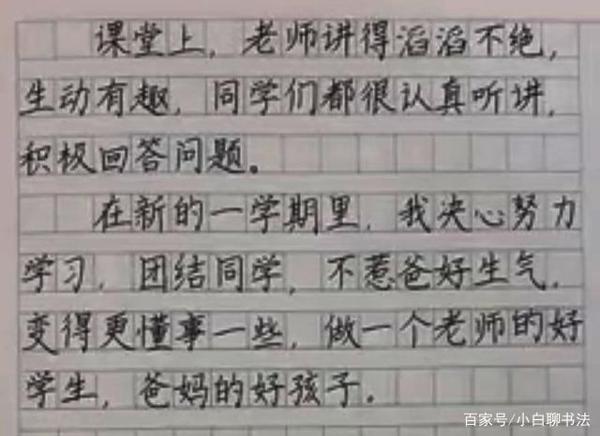 课堂上，老师讲得滔滔不绝，
生动有趣，同学们都很认真听讲，
积极回答问题。
在新的一学期里，我决心努力
学习，团结同学，不惹爸好生气，
变得更懂事一些，做一个老师的好
学生，爸妈的好孩子。
百家号/小白聊书法